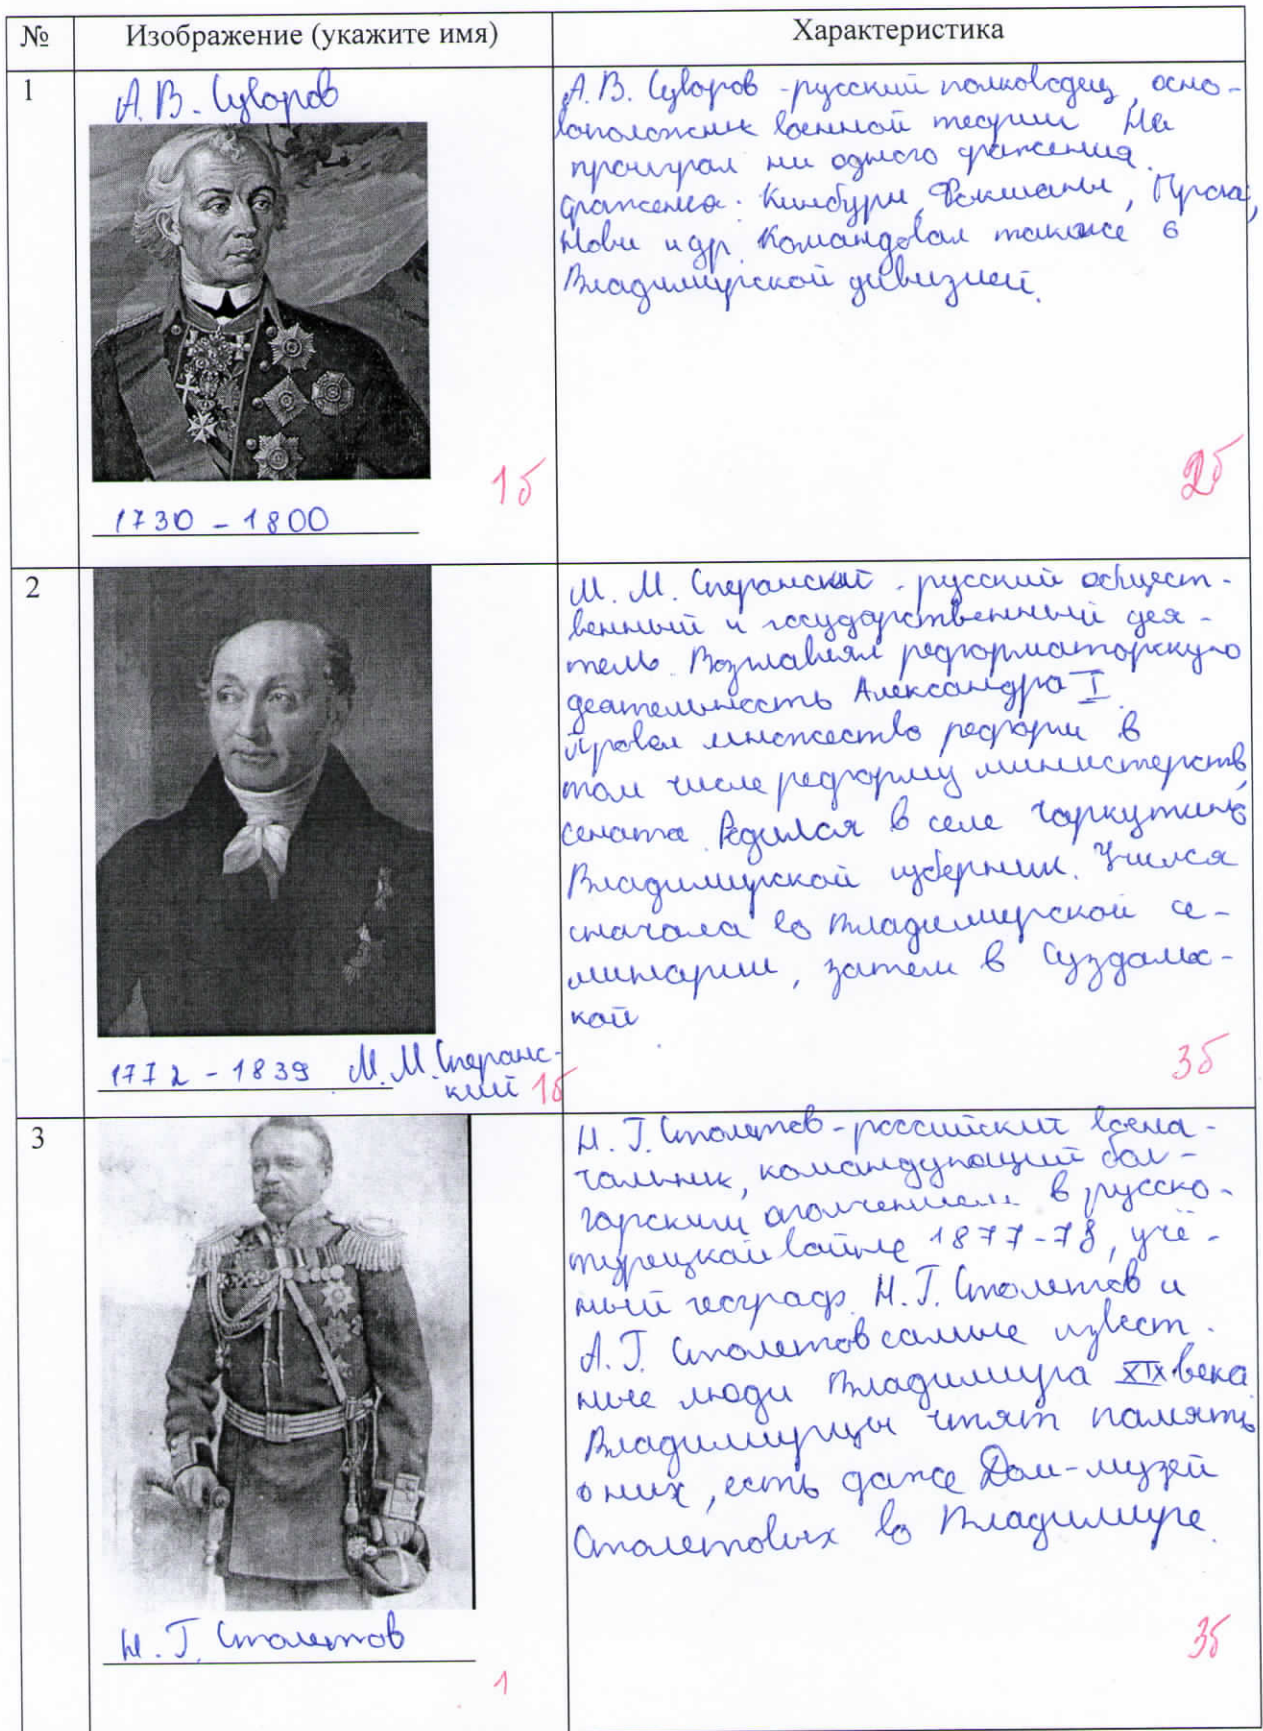 № Изображение (укажите имя) Характеристика
1
А. В. Суворов
1730 – 1800
1б
А. В. Суворов - русский полководец, осно-
воположник военной теории Не
проиграл ни одного сражения.
сражения: Кинбурн, Фокшаны, Прага,
Нови и др. Командовал также в
Владимирской дивизией.
2б
2
1772 – 1839 М. М. Сперанс-
кий 1б
М. М. Сперанский - русский общест-
венный и государственный дея-
тель. Возглавлял реформаторскую
деятельность Александра I.
Провел множество реформ в
том числе реформу министерств,
сената. Родился в селе Черкутино
Владимирской губернии. Учился
сначала во Владимирской се-
минарии, затем в Суздальс-
кой
3б
3
Н. Г. Столетов
1
Н. Г. Столетов - российский воена-
чальник, командующий бол-
гарским ополчением в русско-
турецкой войне 1877-78, учё-
ный географ. Н. Г. Столетов и
А. Г. Столетов самые извест-
ные люди Владимира XIX века.
Владимирцы чтят память
о них, есть даже Дом-музей
Столетовых во Владимире.
3б